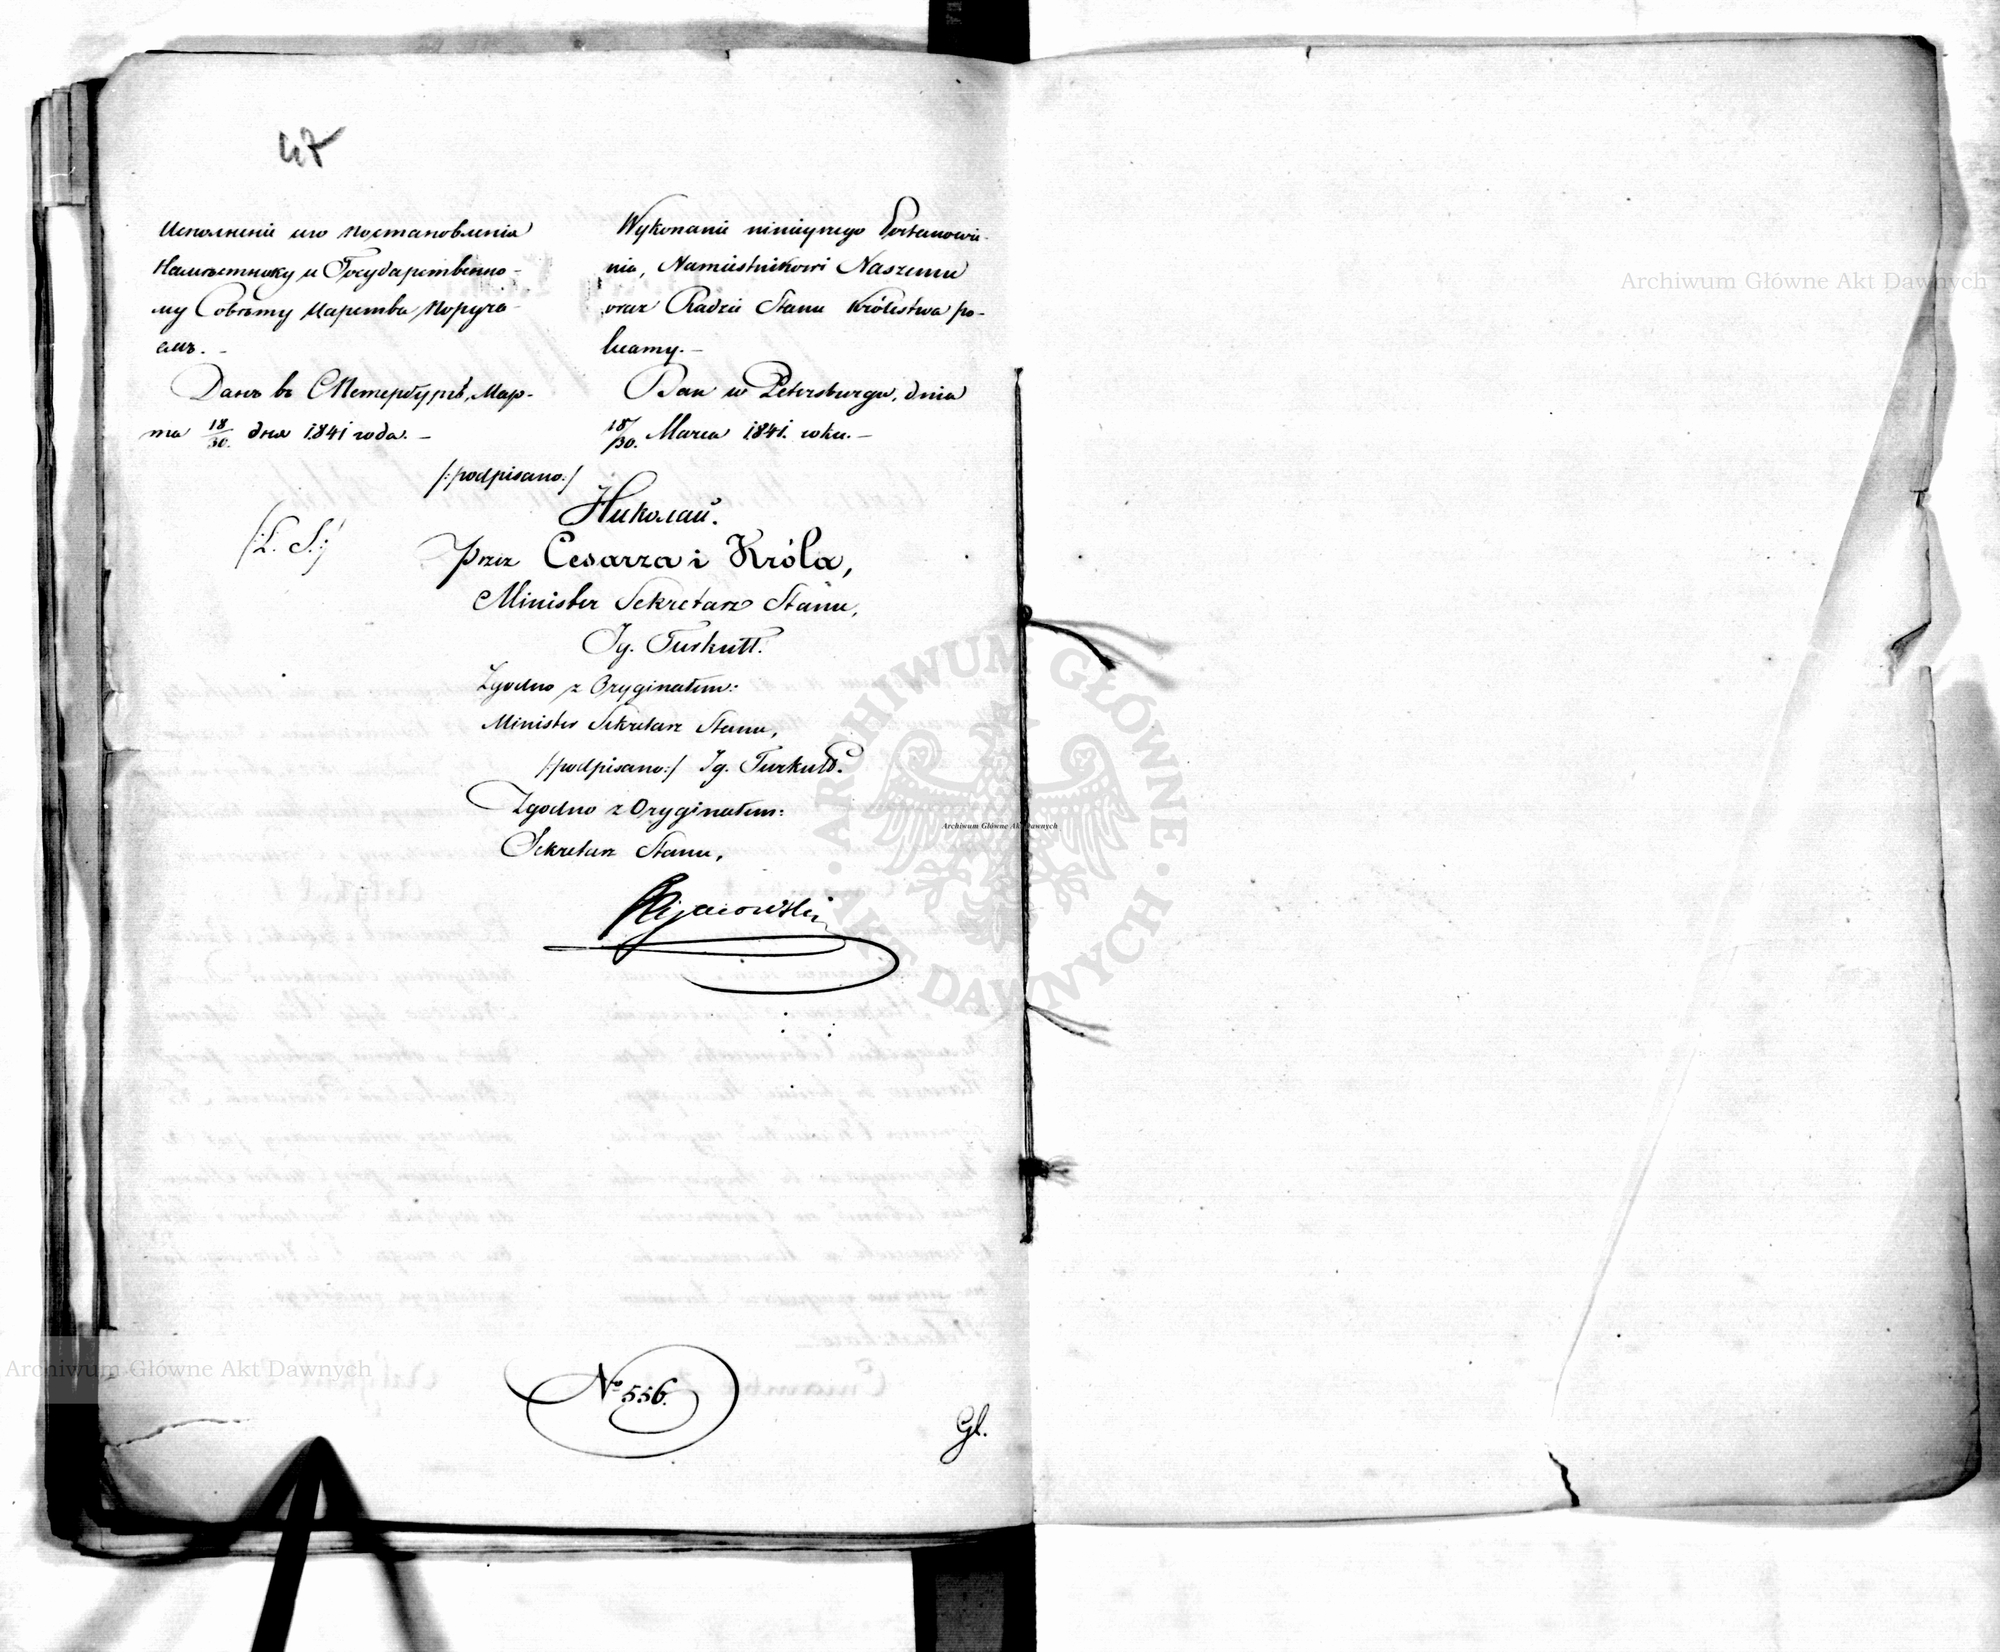 47
Исполненіе сего постановленія
Намѣстнику и Государственно-
му Совѣту Царства поруча-
емъ. -
Данъ въ СПетербургѣ, Мар-
та 18/30. дня 1841 года. -
Wykonanie niniejszego Postanowie-
nia, Namiestnikowi Naszemu
oraz Radzie Stanu Królestwa po-
lecamy. -
Dan w Petersburgu, dnia
18/30. Marca 1841. roku. -
/:podpisano:/
Николай.
/:L. S.:/
Przez Cesarza i Króla,
Minister Sekretarz Stanu,
Ig. Turkułł.
Zgodno z Oryginałem:
Minister Sekretarz Stanu,
/:podpisano:/ Ig. Turkułł.
Zgodno z Oryginałem:
Sekretarz Stanu,
No 556.
Gl.
Archiwum Główne Akt Dawnych
Archiwum Główne Akt Dawnych
Archiwum Główne Akt Dawnych
ARCHIWUM GŁÓWNE AKT DAWNYCH